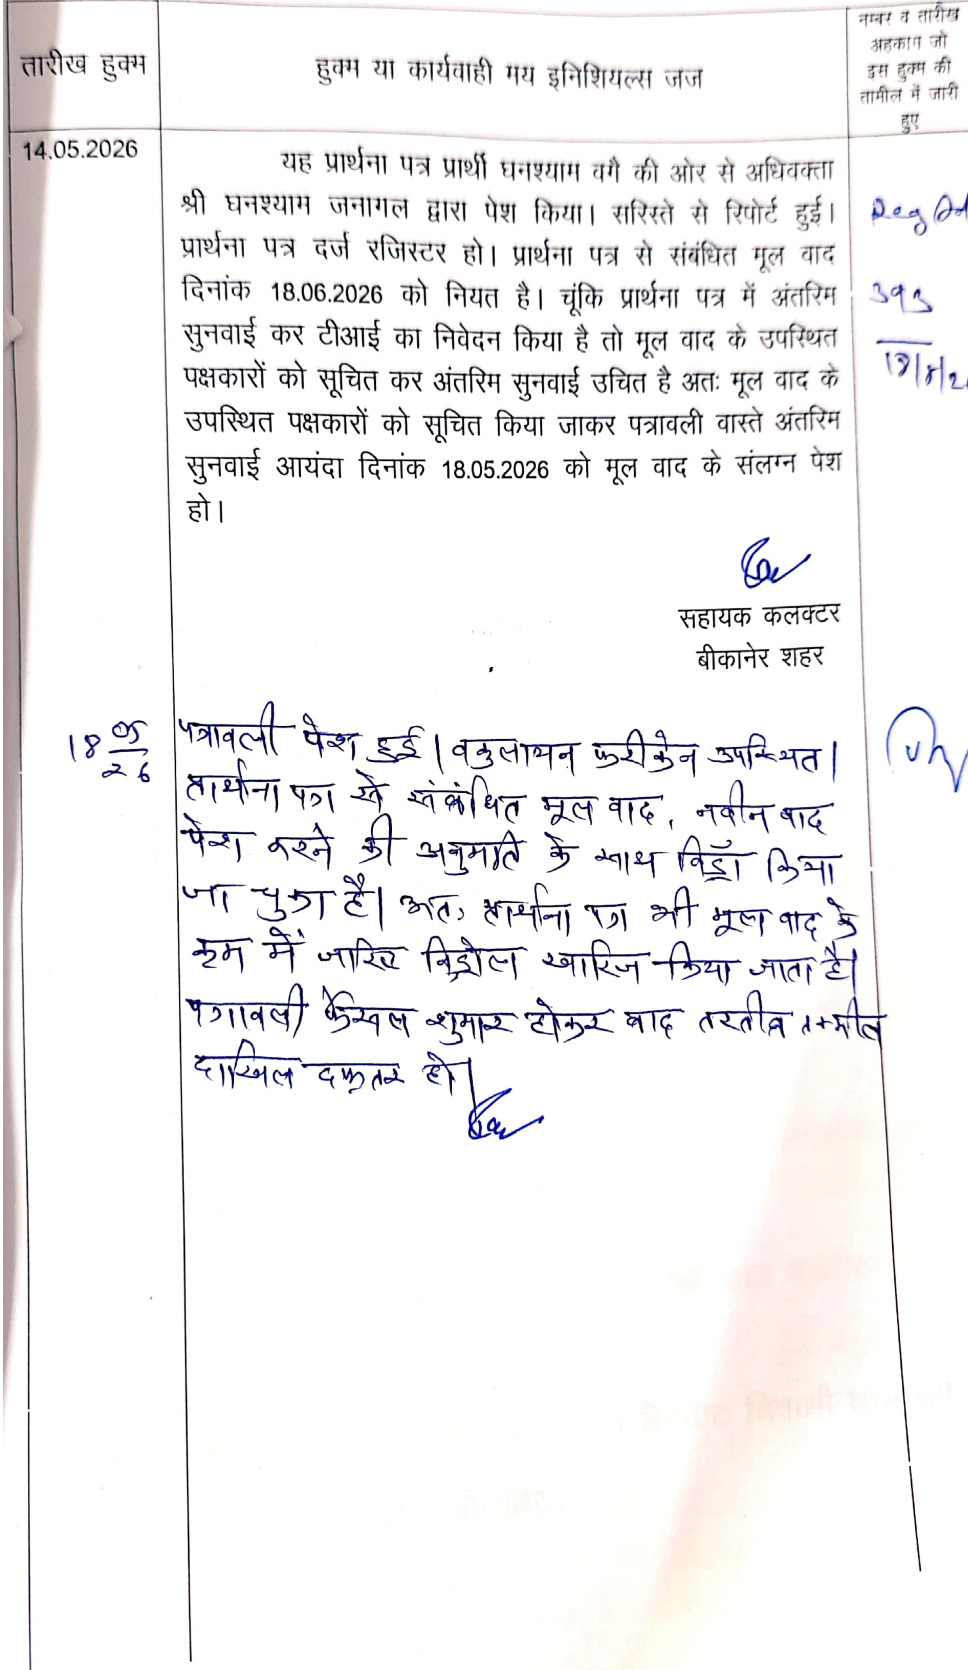 तारीख हुक्म
हुक्म या कार्यवाही मय इनिशियल्स जज
नम्बर व तारीख
अहकाम जो
इस हुक्म की
तामील में जारी
हुए
14.05.2026
यह प्रार्थना पत्र प्रार्थी घनश्याम वगै की ओर से अधिवक्ता
श्री घनश्याम जनागल द्वारा पेश किया। सरिस्ते से रिपोर्ट हुई।
प्रार्थना पत्र दर्ज रजिस्टर हो। प्रार्थना पत्र से संबंधित मूल वाद
दिनांक 18.06.2026 को नियत है। चूंकि प्रार्थना पत्र में अंतरिम
सुनवाई कर टीआई का निवेदन किया है तो मूल वाद के उपस्थित
पक्षकारों को सूचित कर अंतरिम सुनवाई उचित है अतः मूल वाद के
उपस्थित पक्षकारों को सूचित किया जाकर पत्रावली वास्ते अंतरिम
सुनवाई आयंदा दिनांक 18.05.2026 को मूल वाद के संलग्न पेश
हो।
Reg
393
सहायक कलक्टर
बीकानेर शहर
18 05
26
पत्रावली पेश हुई। वकुलायन फरीकेन उपस्थित।
प्रार्थना पत्र से संबंधित मूल वाद, नवीन वाद
पेश करने की अनुमति के साथ विड्रॉ किया
जा चुका है। अतः प्रार्थना पत्र भी मूल वाद के
क्रम में जरिये विड्रोल खारिज किया जाता है।
पत्रावली फैसल शुमार होकर बाद तरतीब तकमील
दाखिल दफ्तर हो।